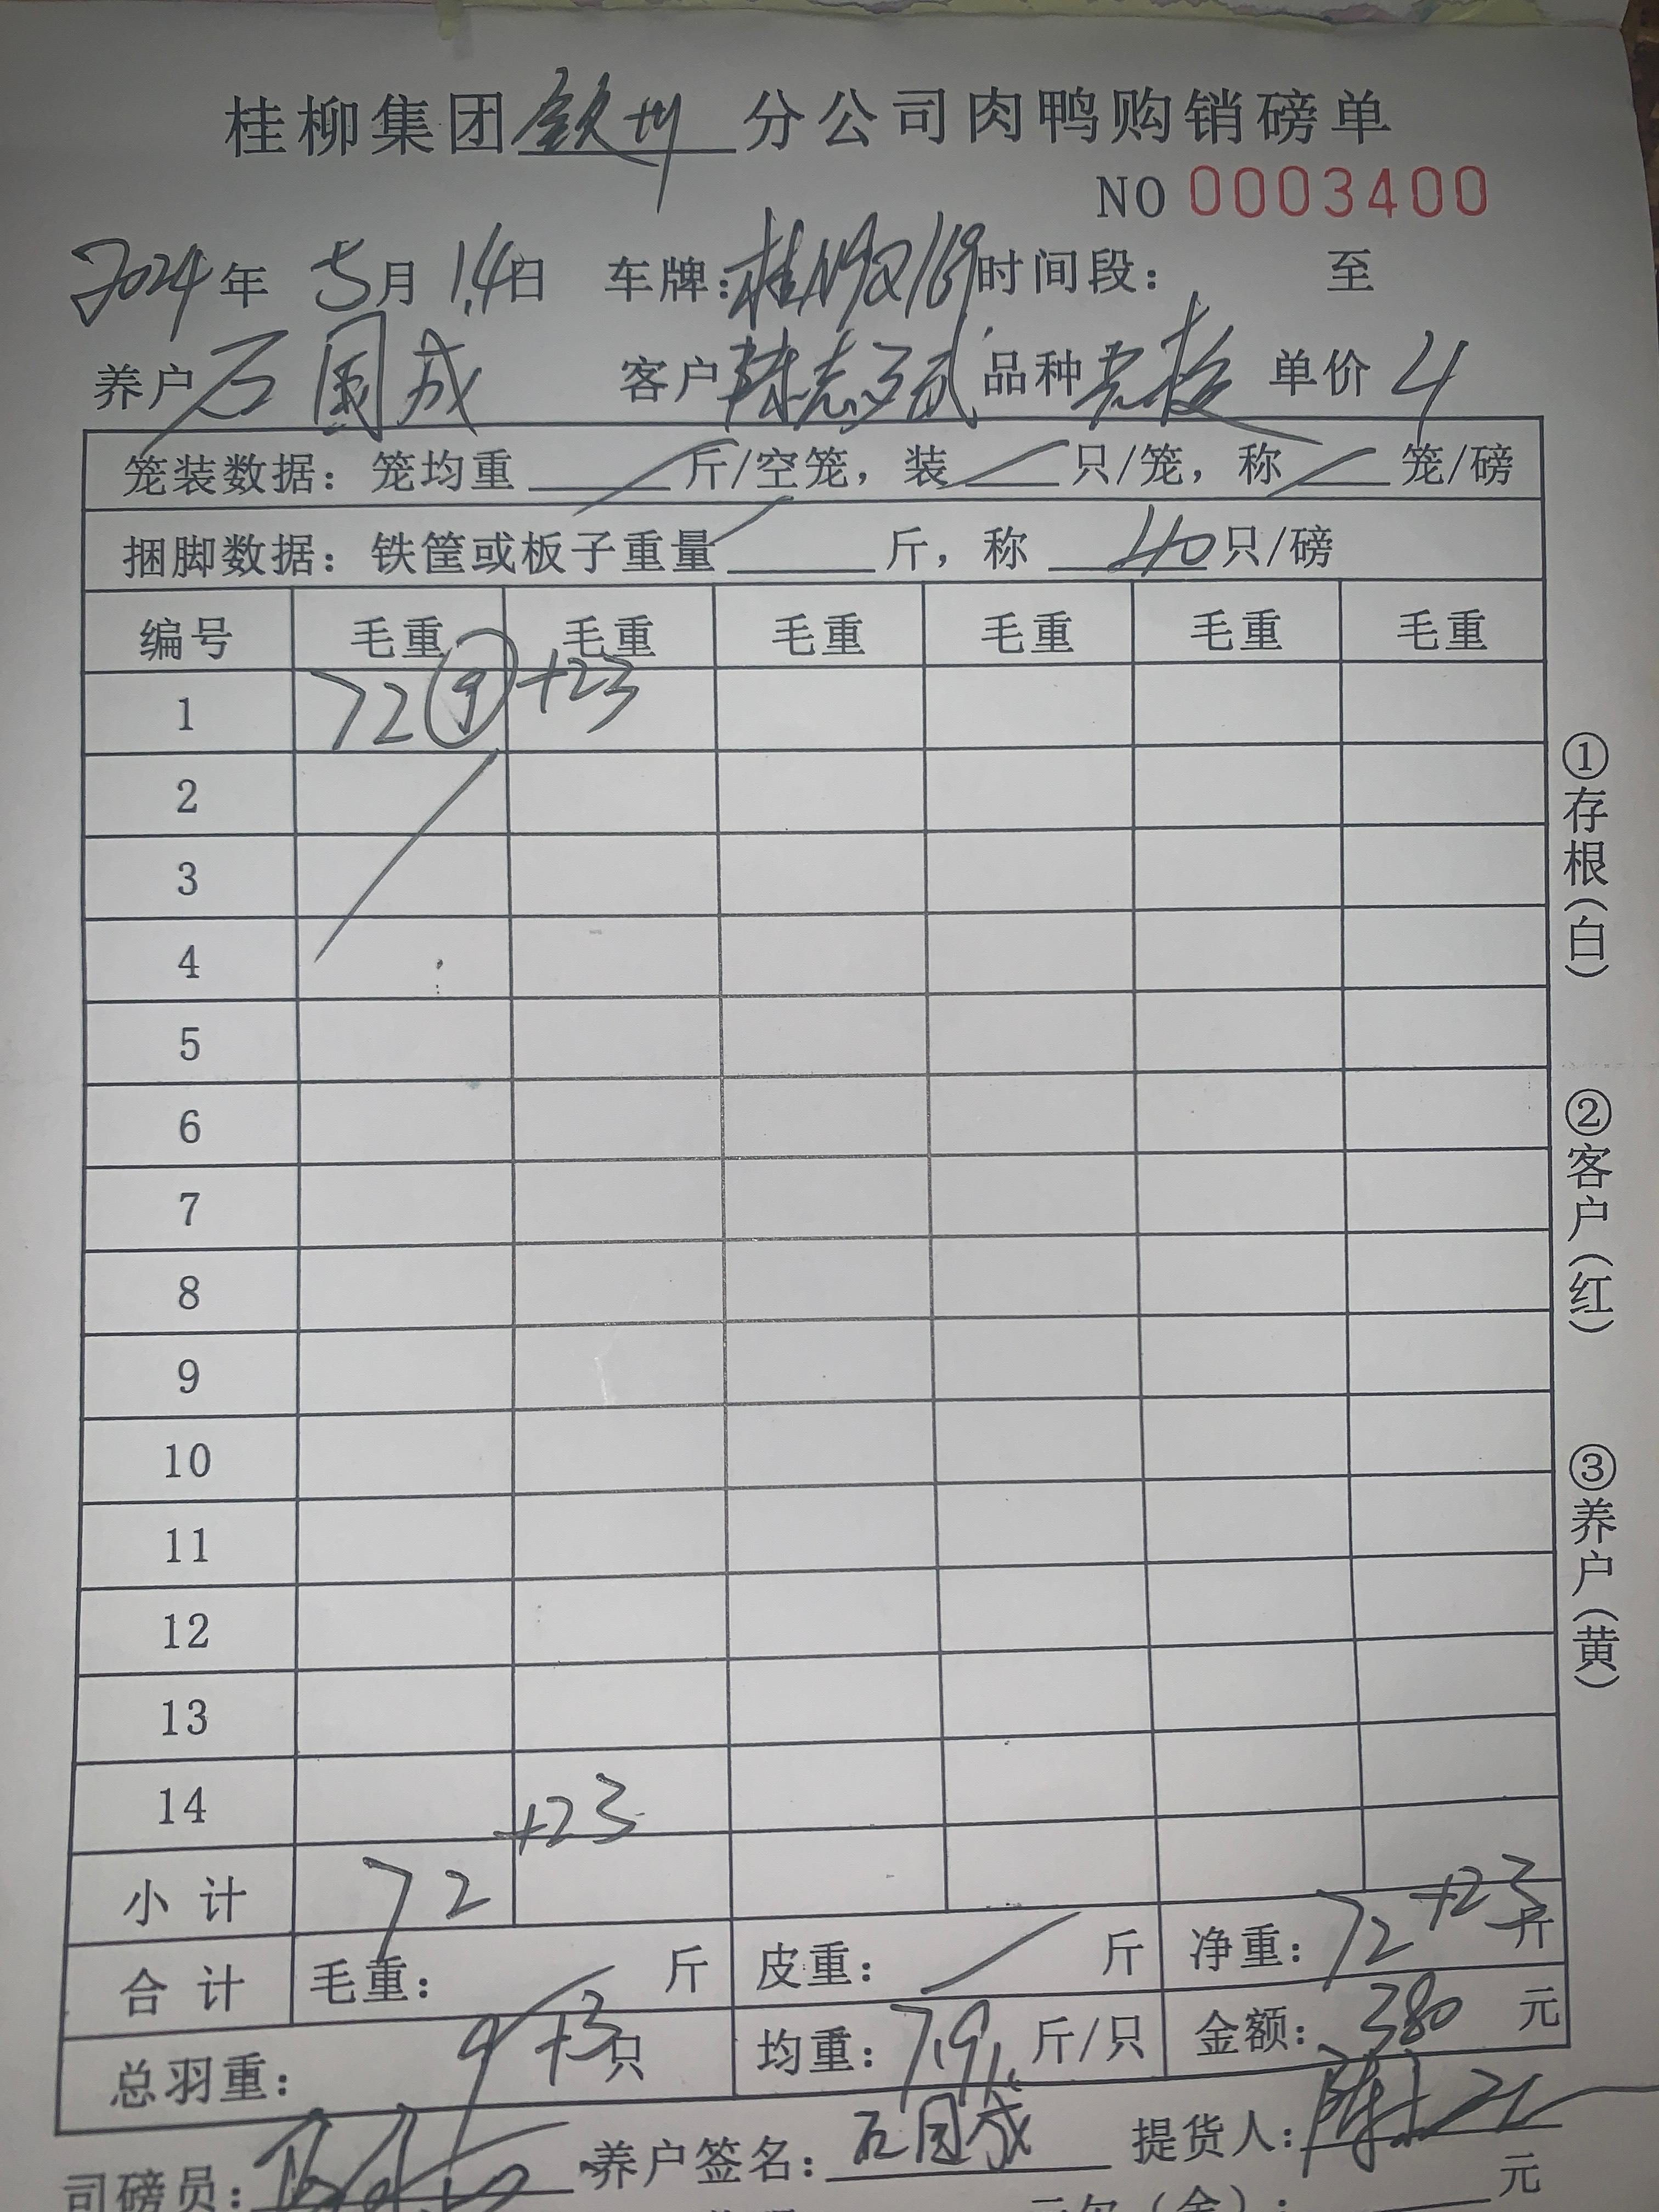 桂柳集团钦州分公司肉鸭购销磅单
NO 0003400
2024年 5月 14日 车牌: 时间段: 至
养户 石国成 客户 陈志武 品种 单价 4
笼装数据: 笼均重 斤/空笼, 装 只/笼, 称 笼/磅
捆脚数据: 铁筐或板子重量 斤, 称 40 只/磅
编号 毛重 毛重 毛重 毛重 毛重 毛重
1 72 9 +23
2
3
4
5
6
7
8
9
10
11
12
13
14
小计 72 +23
合计 毛重: 斤 皮重: 斤 净重: 72+23 斤
总羽重: 9+3 只 均重: 7.91 斤/只 金额: 380 元
司磅员: 养户签名: 石国成 提货人:
元
①存根(白)
②客户(红)
③养户(黄)